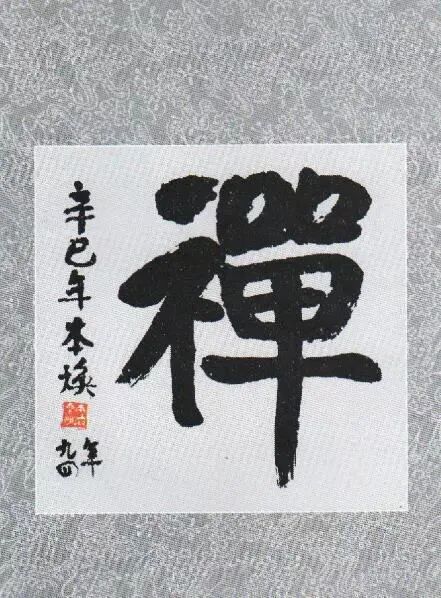 禪
辛巳年本煥
年
九四